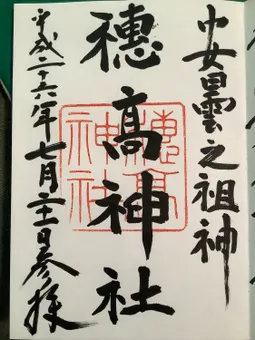 安曇之祖神
穂高神社
穂高神社
平成二十六年七月二十一日参拝